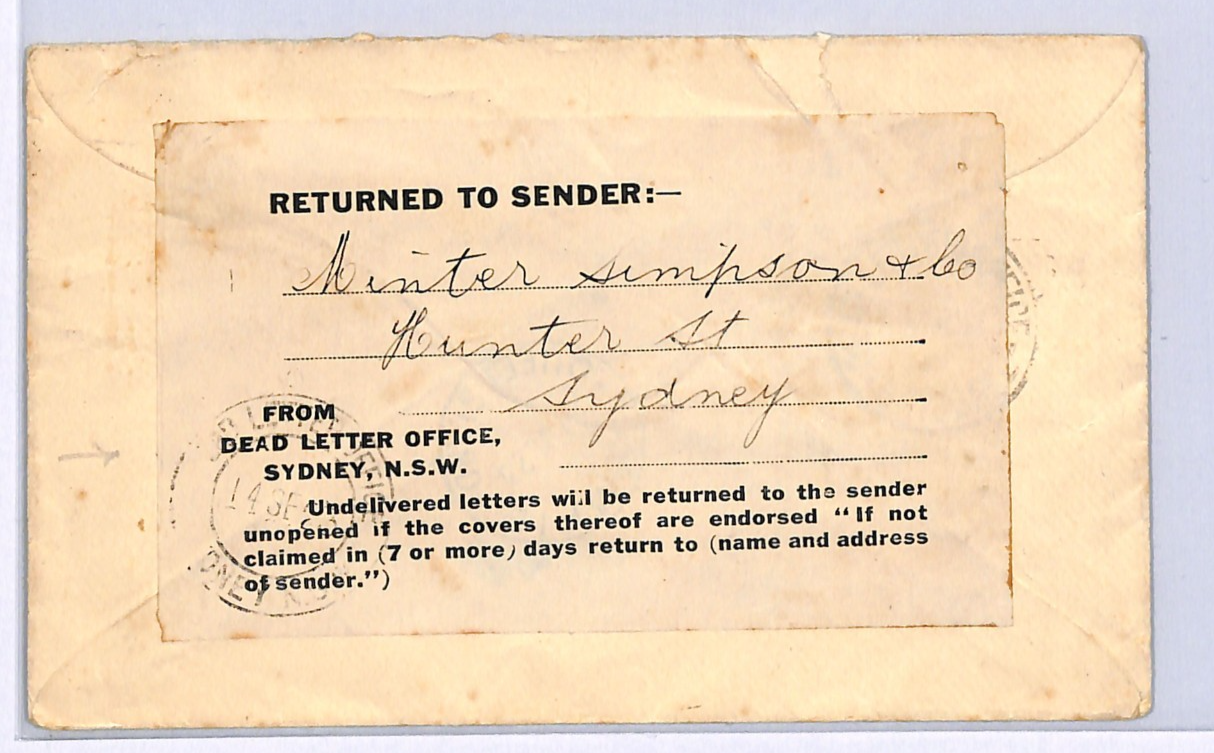 RETURNED TO SENDER:—
Minter Simpson & Co
Hunter St
Sydney
FROM
DEAD LETTER OFFICE,
SYDNEY, N.S.W.
Undelivered letters will be returned to the sender
unopened if the covers thereof are endorsed “If not
claimed in (7 or more) days return to (name and address
of sender.”)
LETTER OFFIC
14 SE
DNEY N.S
FFICE